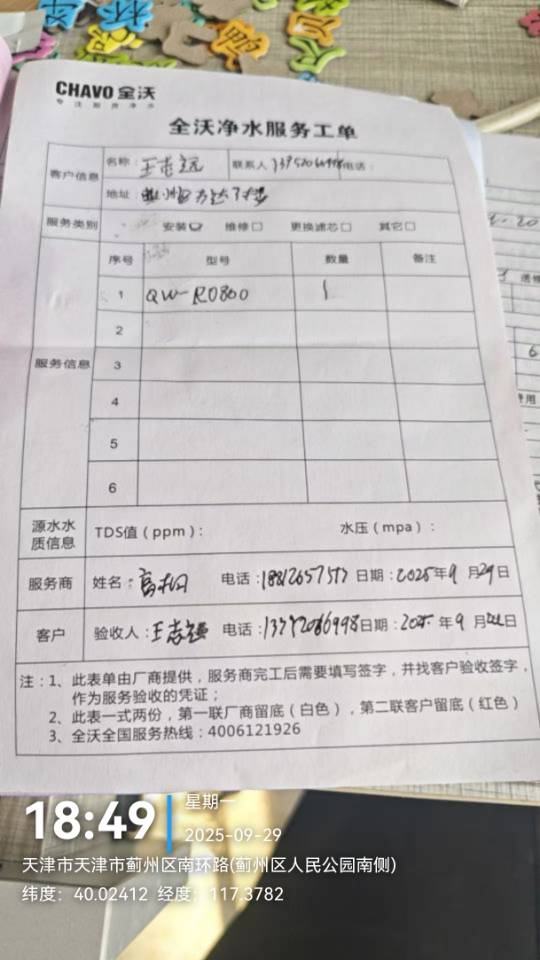 CHAVO 全沃
专注厨房净水
全沃净水服务工单
客户信息 名称: 联系人 电话:
地址:
服务类别 安装 维修 更换滤芯 其它
序号 型号 数量 备注
服务信息
1 QW-RO800 1
2
3
4
5
6
源水水质信息 TDS值(ppm): 水压(mpa):
服务商 姓名: 电话: 日期:2025年9月29日
客户 验收人: 电话: 日期: 年9月 日
注:1、此表单由厂商提供,服务商完工后需要填写签字,并找客户验收签字,
作为服务验收的凭证;
2、此表一式两份,第一联厂商留底(白色),第二联客户留底(红色)
3、全沃全国服务热线:4006121926
18:49 星期一
2025-09-29
天津市天津市蓟州区南环路(蓟州区人民公园南侧)
纬度:40.02412 经度:117.3782